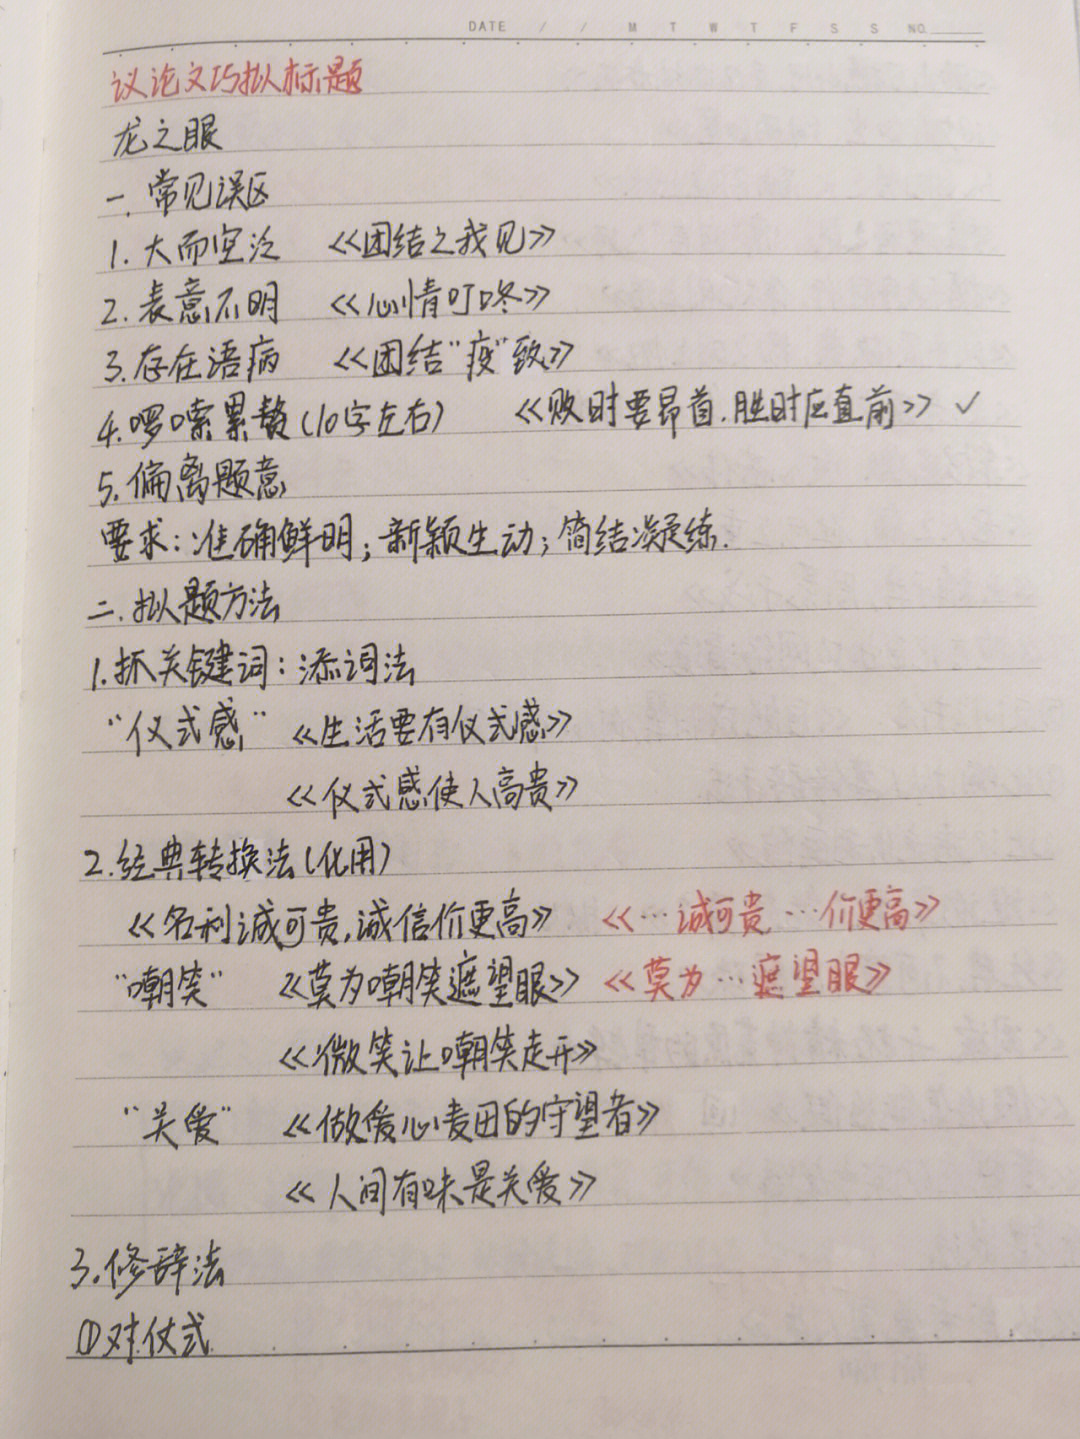 DATE / / M T W T F S S NO.
议论文巧拟标题
龙之眼
一.常见误区
1.大而空泛 《团结之我见》
2.表意不明 《心情叮咚》
3.存在语病 《团结“疫”致》
4.啰嗦累赘(10字左右) 《败时要昂首.胜时应直前》✓
5.偏离题意
要求:准确鲜明;新颖生动;简结凝练.
二.拟题方法
1.抓关键词:添词法
“仪式感” 《生活要有仪式感》
《仪式感使人高贵》
2.经典转换法(化用)
《名利诚可贵,诚信价更高》 《…诚可贵…价更高》
“嘲笑” 《莫为嘲笑遮望眼》 《莫为…遮望眼》
《微笑让嘲笑走开》
“关爱” 《做爱心麦田的守望者》
《人间有味是关爱》
3.修辞法
①对仗式